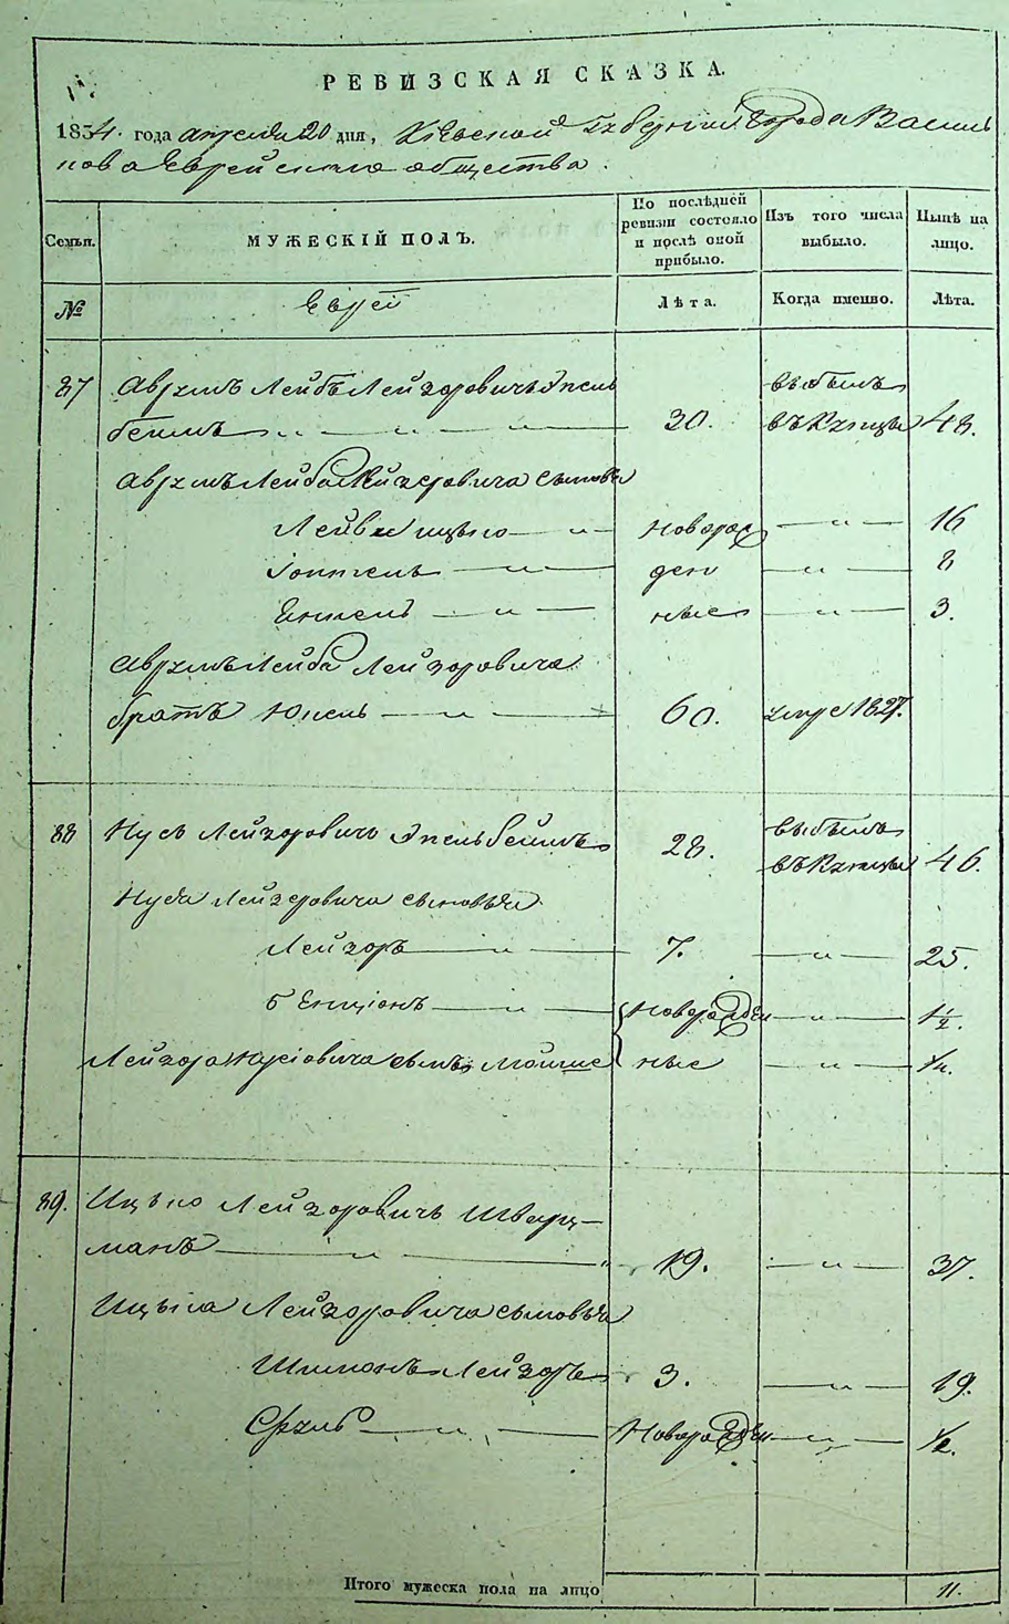 РЕВИЗСКАЯ СКАЗКА.
1834. года апреля 20 дня, Кіевской Губерніи Города Василь
кова Еврейскаго общества.
Семьи. МУЖЕСКІЙ ПОЛЪ. По послѣдней ревизіи состояло и послѣ оной прибыло. Изъ того числа выбыло. Нынѣ на лицо.
№ Евреи Лѣта. Когда именно. Лѣта.
87 Аврумъ Лейбъ Лейзоровичъ Эпель выбылъ
беимъ 30. въ Купцы 48.
Аврумъ Лейба Лейзеровича сыновья
Ицько новорож 16
ден 8
ные 3.
Аврумъ Лейба Лейзоровича
братъ Юкель 60. умре 1827.
88 Нусъ Лейзоровичъ Эпельбеимъ 28. выбылъ въ Купцы 46.
Нуса Лейзеровича сыновья
Лейзоръ 7. 25.
Бенціонъ новорожден 1½.
Лейзора Нусіовича сынъ Мошко ные
89. Ицько Лейзоровичъ Шварц-
манъ 19. 37.
Ицька Лейзоровича сыновья
Шимонъ Лейзоръ 3. 19.
Сруль Новорожден ½.
Итого мужеска пола на лицо 11.